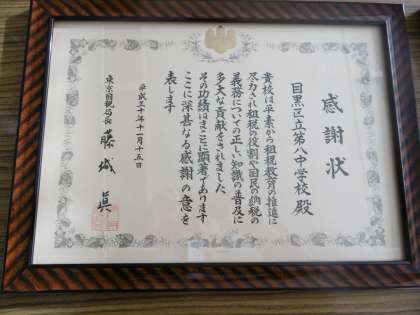 感謝状
目黒区立第八中学校殿
貴校は平素から租税教育の推進に
尽力され租税の役割や国民の納税の
義務についての正しい知識の普及に
多大な貢献をされました
その功績はまことに顕著であります
ここに深甚なる感謝の意を
表します
平成三十年十一月十五日
東京国税局長 藤城眞